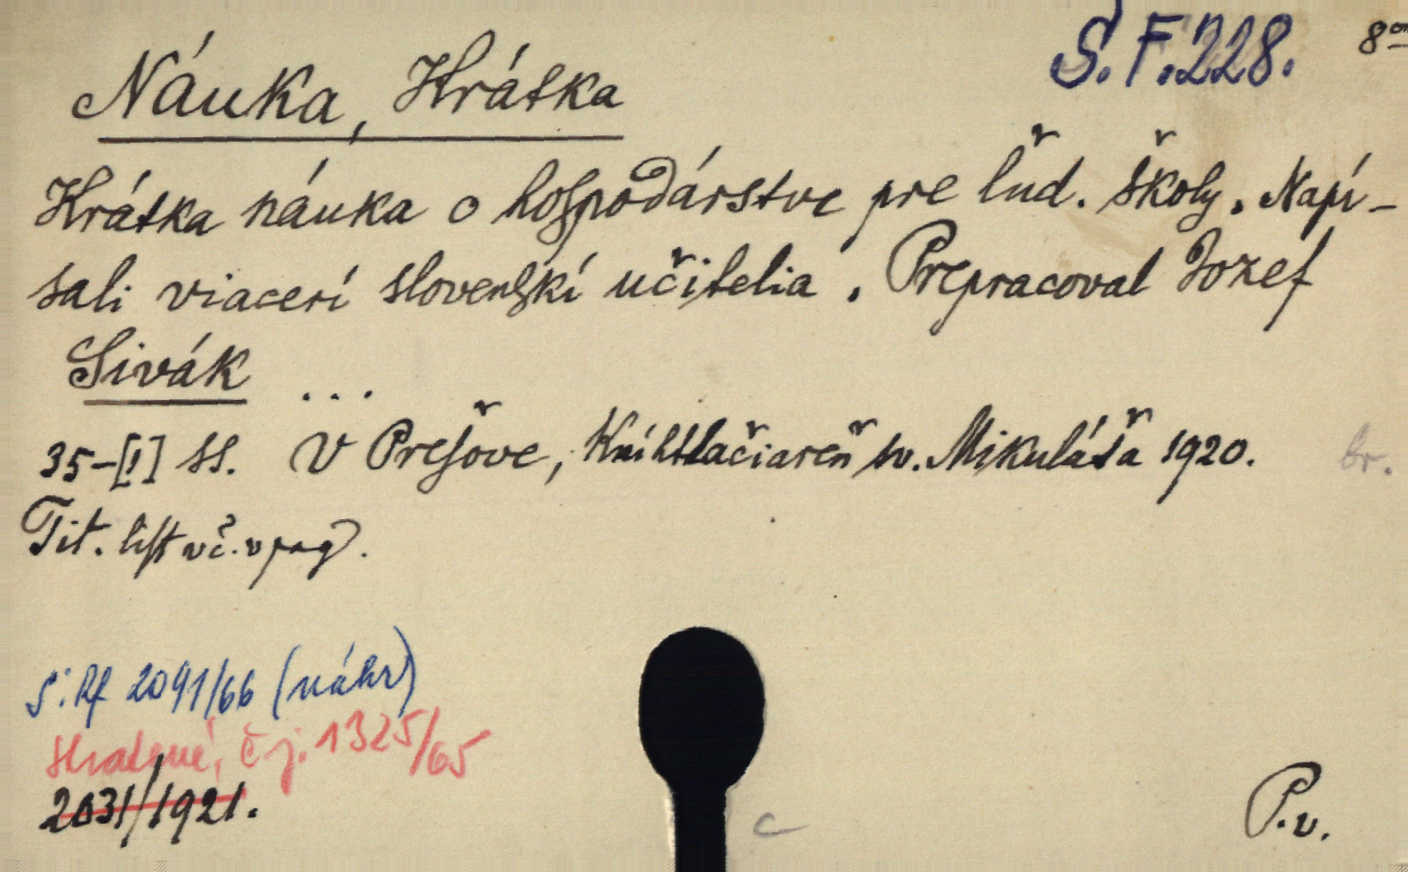 S.F.228. 8°
Náuka, Krátka
Krátka náuka o hospodárstve pre ľud. školy. Napí-
sali viacerí slovenskí učitelia. Prepracoval Jozef
Sivák ...
35-[1] ss. V Prešove, Kníhtlačiareň sv. Mikuláša 1920. br.
Tit. list vč. v pag.
2091/66 (náhr)
stratené, č.j. 1325/65
2031/1921.
c
P.v.